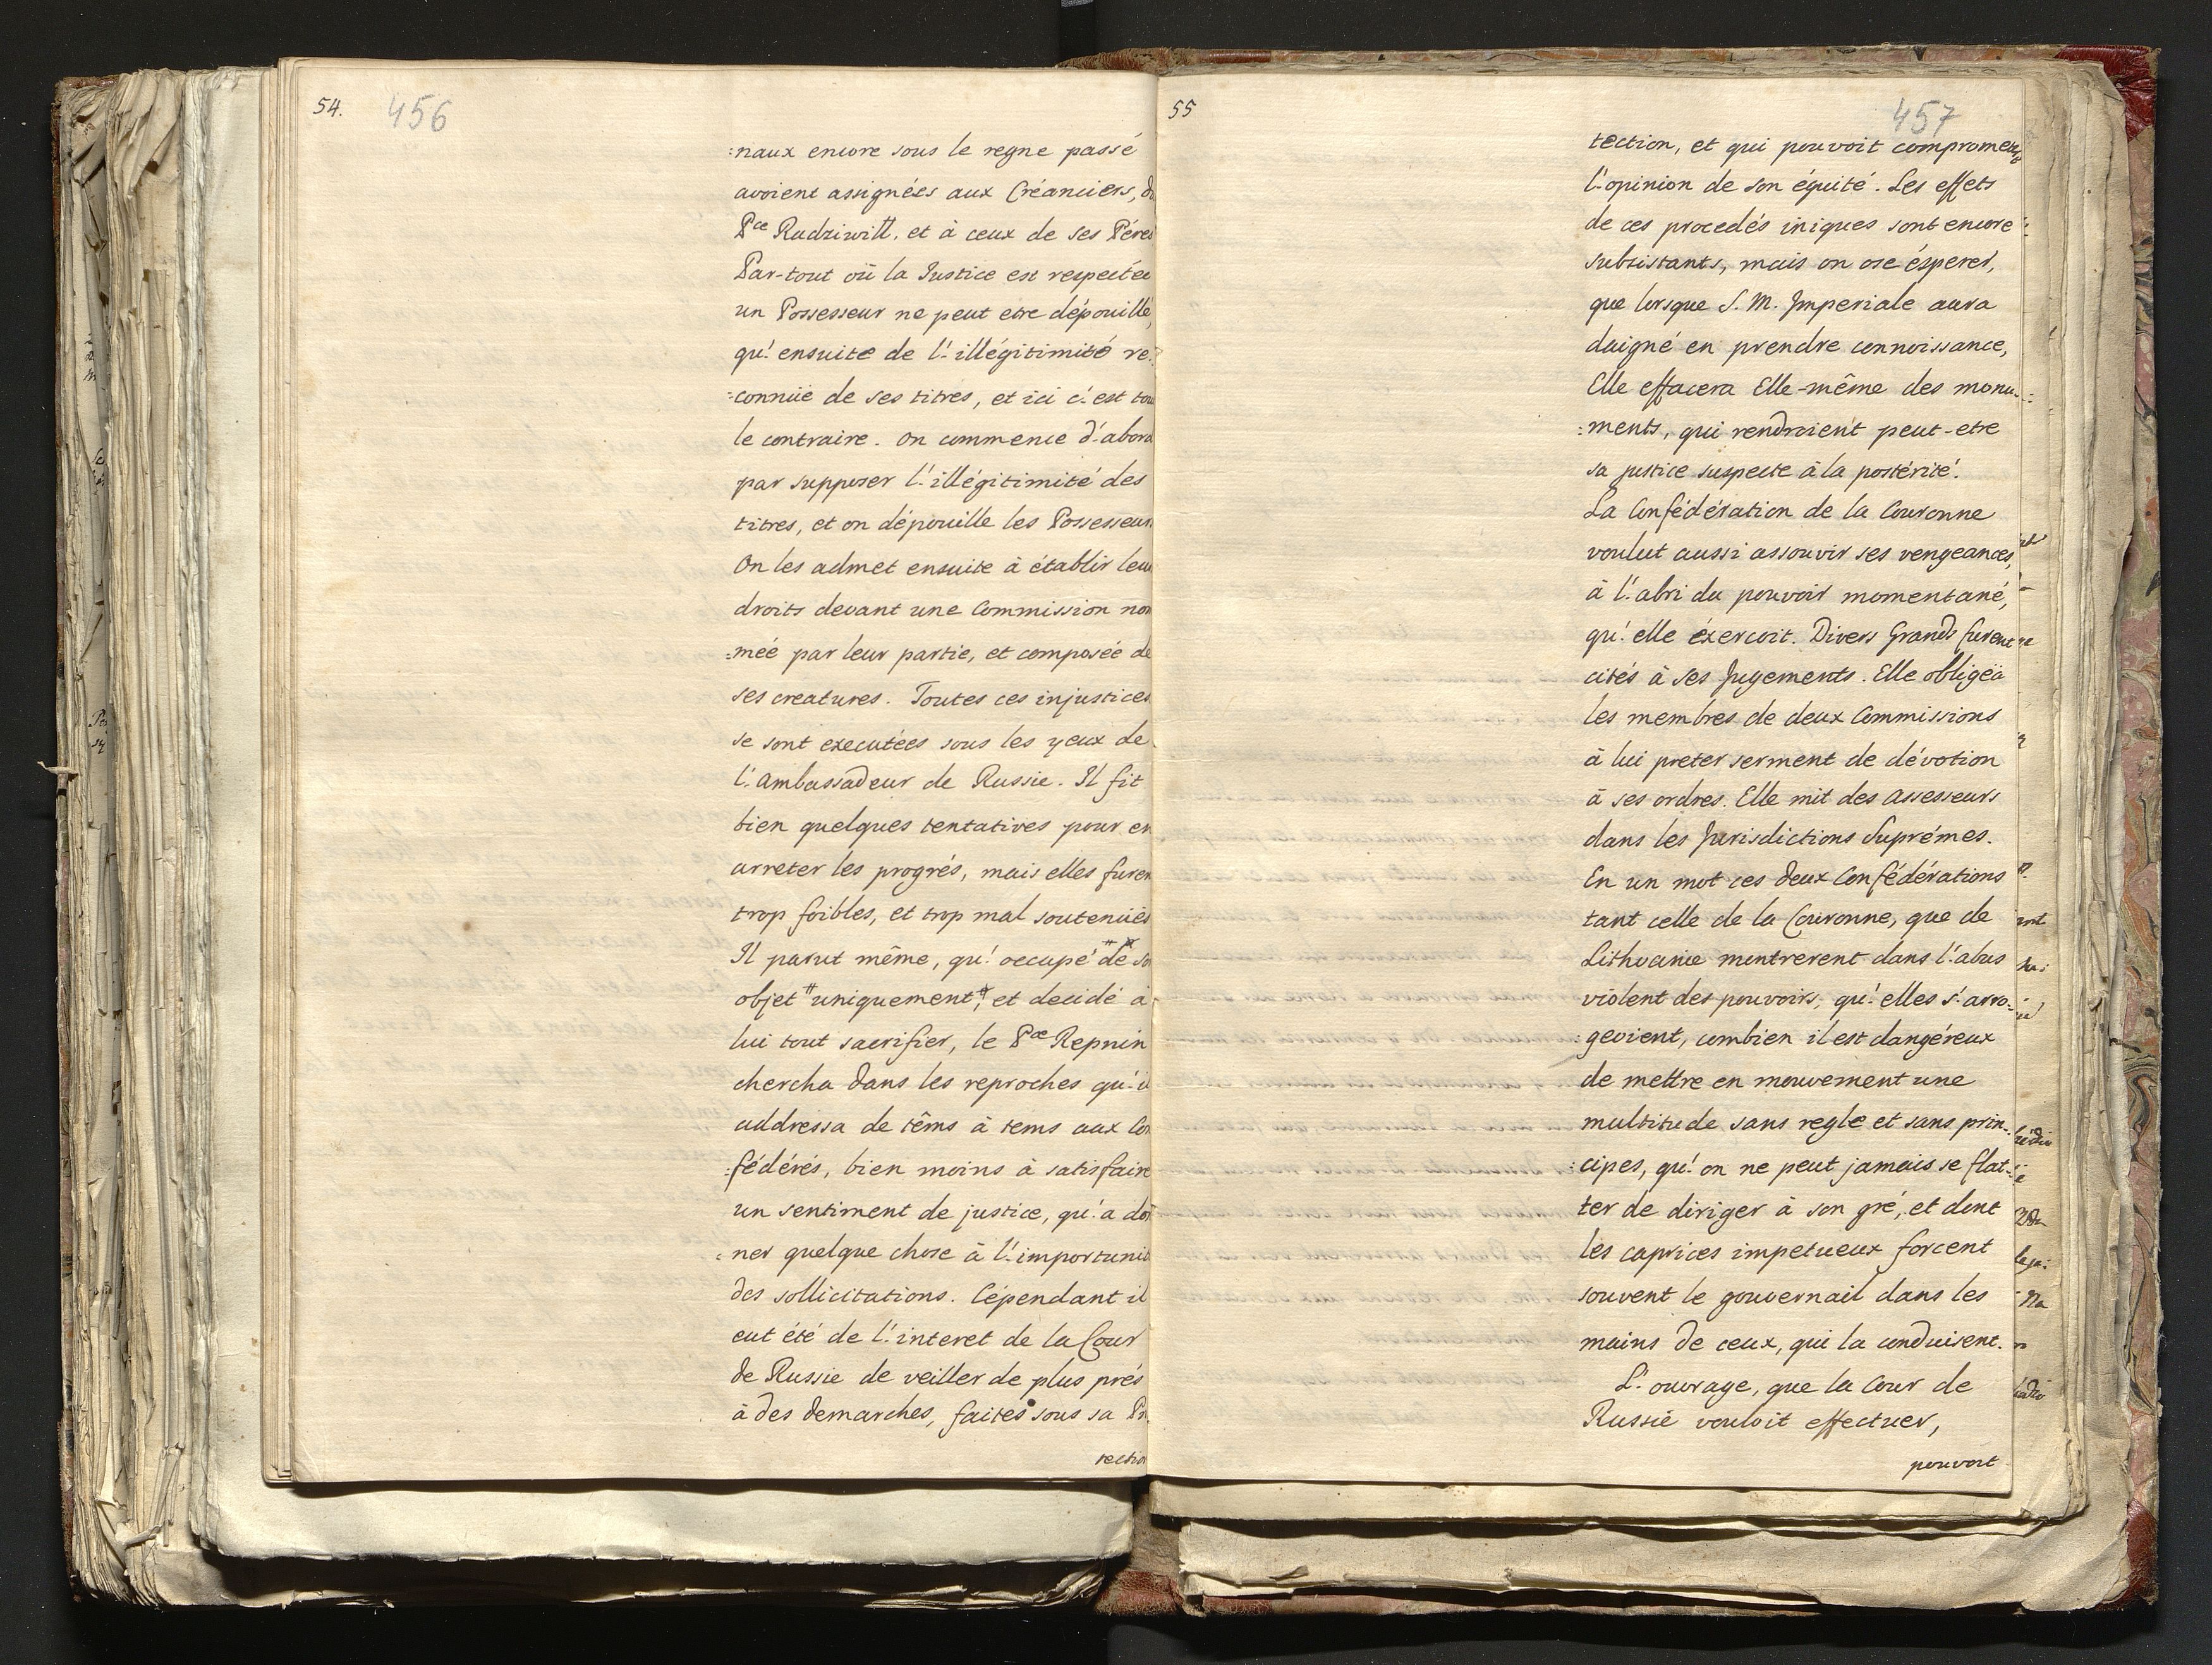 54. 456
:naux encore sous le regne passé
avoient assignées aux Créanciers, du
Pce Radziwill, et à ceux de ses Péres
Par-tout où la Justice est respectée
un Possesseur ne peut etre dépouillé,
qu'ensuite de l'illégitimité re:
:connüe de ses titres, et ici c'est tou
le contraire. On commence d'abord
par supposer l'illégitimité des
titres, et on dépouille les Possesseurs
On les admet ensuite à établir leur
droits devant une Commission nom
:méé par leur partie, et composée de
ses creatures. Toutes ces injustices
se sont executées sous les yeux de
l'ambassadeur de Russie. Il fit
bien quelques tentatives pour en
arreter les progrés, mais elles furen
trop foibles, et trop mal soutenües
Il parut même, qu'occupé de so
objet uniquement, et decidé à
lui tout sacrifier, le Pce Repnin
chercha dans les reproches qu'il
addressa de têms à tems aux Con
:fédérés, bien moins à satisfaire
un sentiment de justice, qu'a don
:ner quelque chose à l'importunit
des sollicitations. Cépendant il
eut été de l'interet de la Cour
de Russie de veiller de plus prés
à des demarches, faites sous sa Pr.
tection
55 457
tection, et qui pouvoit compromet
l'opinion de son équité. Les effets
de ces procedés iniques sont encore
subsistants, mais on ose ésperer,
que lorsque S. M. Imperiale aura
daigné en prendre connoissance,
Elle effacera Elle-même des monu-
:ments, qui rendroient peut-etre
sa justice suspecte à la postérité.
La Confédération de la Couronne
voulut aussi assouvir ses vengeances,
à l'abri du pouvoir momentané,
qu'elle éxercoit. Divers Grands furent
cités à ses Jugements. Elle obligëa
les membres de deux Commissions
à lui preter serment de dévotion
à ses ordres. Elle mit des assesseurs
dans les Jurisdictions Suprémes.
En un mot ces deux Confédérations
tant celle de la Couronne, que de
Lithvanie montrerent dans l'abus
violent des pouvoirs, qu'elles s'arro-
:geoient, combien il est dangéreux
de mettre en mouvement une
multitude sans regle et sans prin-
:cipes, qu'on ne peut jamais se flat-
ter de diriger à son gré, et dont
les caprices impetueux forcent
souvent le gouvernail dans les
mains de ceux, qui la conduisent.
L'ouvrage, que la Cour de
Russie vouloit effectuer,
pouvoit